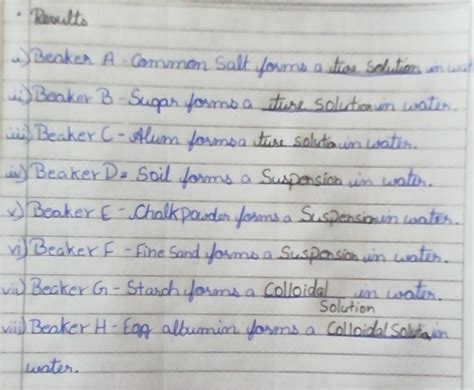 • Results
i) Beaker A - Common Salt forms a true solution in wat
ii) Beaker B - Sugar forms a true solution in water.
iii) Beaker C - Alum forms a true solution in water.
iv) Beaker D = Soil forms a Suspension in water.
v) Beaker E - Chalkpowder forms a Suspension in water.
vi) Beaker F - Fine Sand forms a Suspension in water.
vii) Beaker G - Starch forms a Colloidal in water.
Solution
viii) Beaker H - Egg albumin forms a Colloidal Solution in
water.